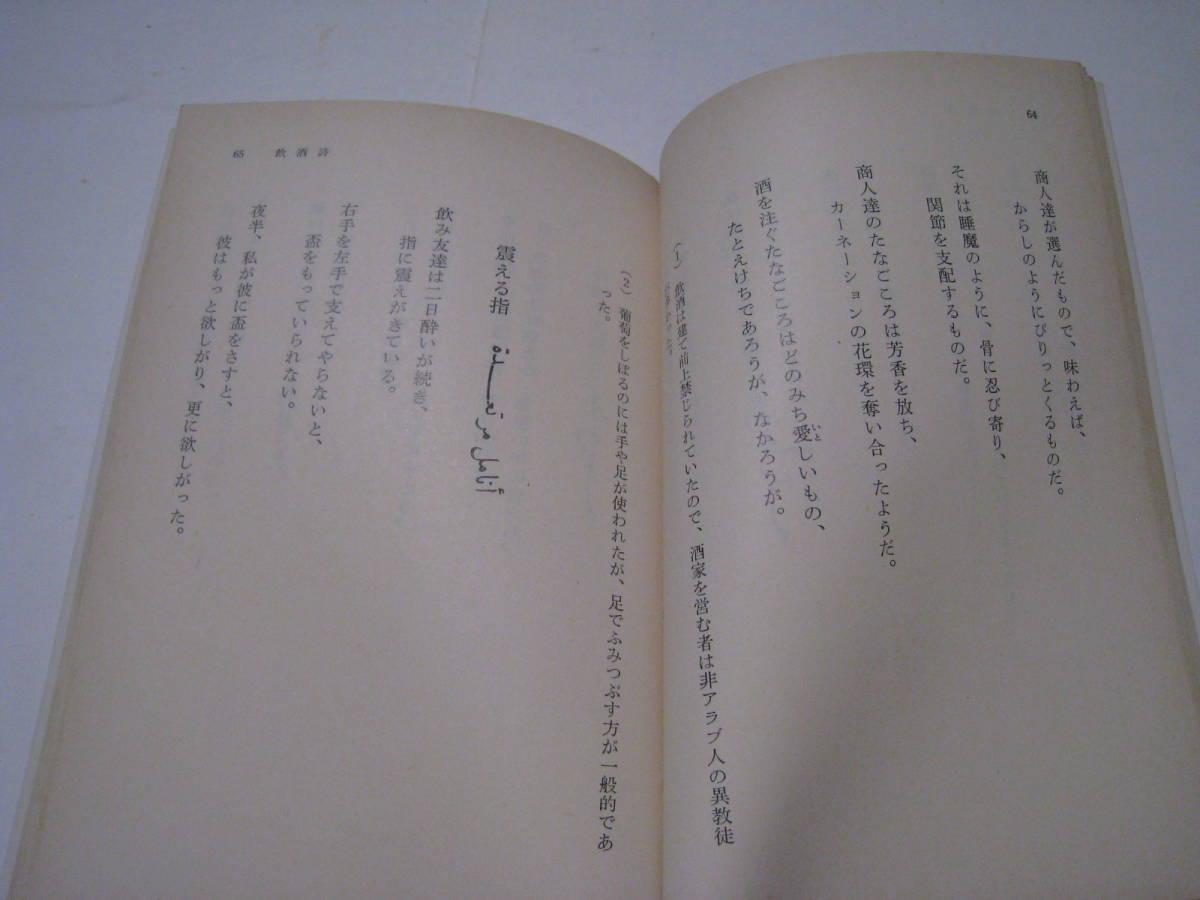 64
商人達が選んだもので、味わえば、
からしのようにぴりっとくるものだ。
それは睡魔のように、骨に忍び寄り、
関節を支配するものだ。
商人達のたなごころは芳香を放ち、
カーネーションの花環を奪い合ったようだ。
酒を注ぐたなごころはどのみち愛しいもの、
たとえけちであろうが、なかろうが。
(1) 飲酒は建て前上禁じられていたので、酒家を営む者は非アラブ人の異教徒
(2) 葡萄をしぼるのには手や足が使われたが、足でふみつぶす方が一般的であ
った。
65 飲酒詩
震える指 أنامل مرتعدة
飲み友達は二日酔いが続き、
指に震えがきている。
右手を左手で支えてやらないと、
盃をもっていられない。
夜半、私が彼に盃をさすと、
彼はもっと欲しがり、更に欲しがった。